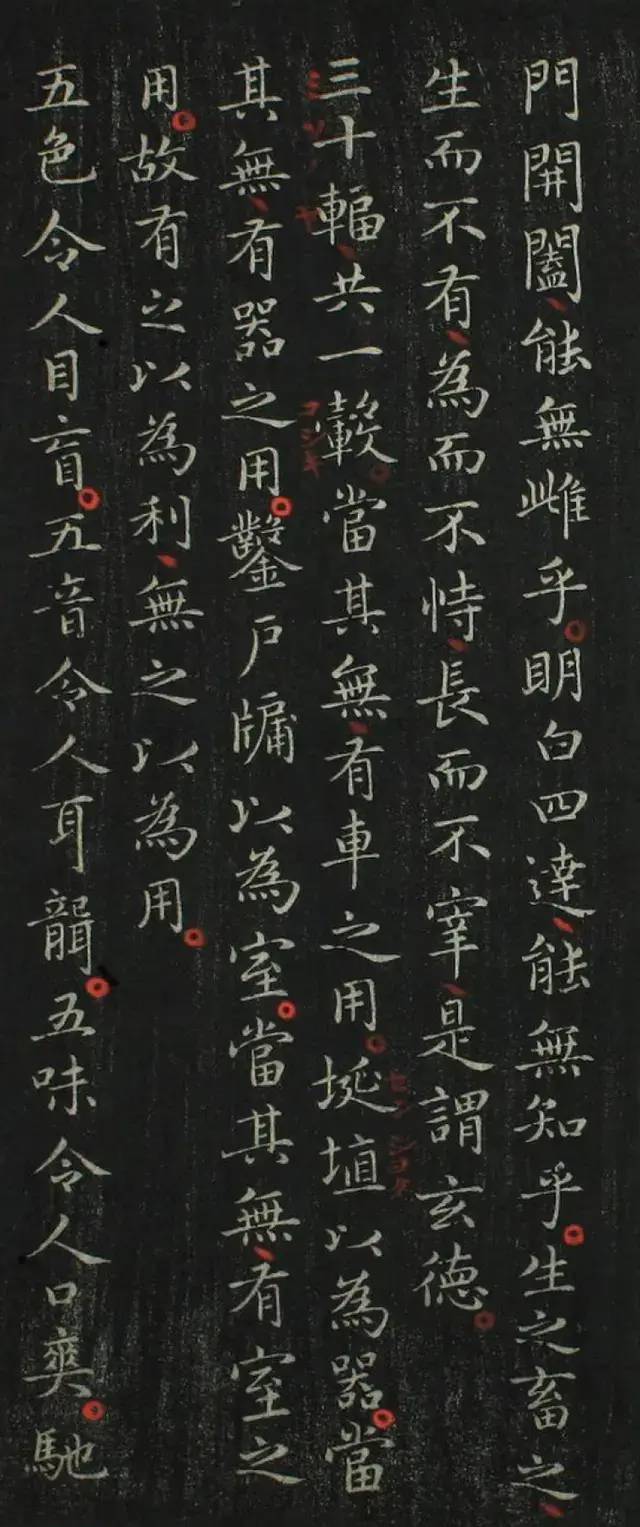 門開闔能無雌乎明白四達能無知乎生之畜之
生而不有為而不恃長而不宰是謂玄德
三十輻共一轂當其無有車之用埏埴以為器當
其無有器之用鑿戶牖以為室當其無有室之
用故有之以為利無之以為用
五色令人目盲五音令人耳聾五味令人口爽馳
コシキ